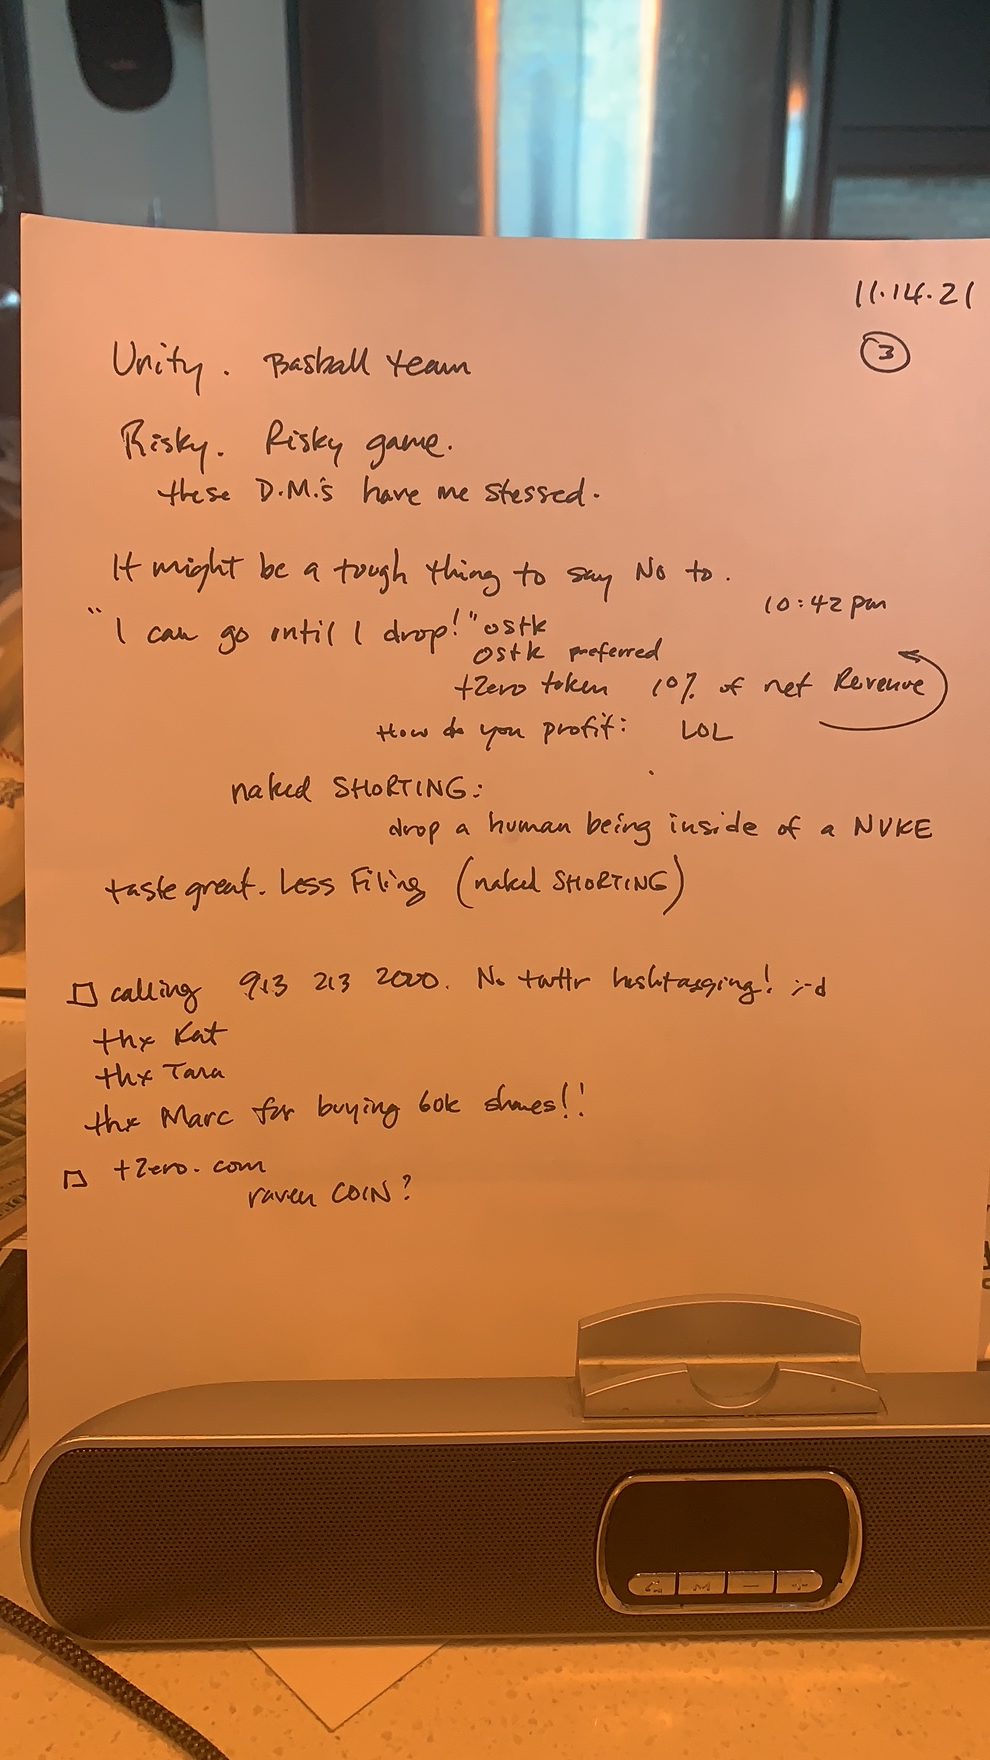 11.14.21
3
Unity. Basball team
Risky. Risky game.
these D.M.'s have me stessed.
It might be a tough thing to say No to.
10:42 pm
"I can go until I drop!" ostk
ostk preferred
tZero token 10% of net Revenue
How do you profit: LOL
naked SHORTING:
drop a human being inside of a NUKE
taste great. Less Filing (naked SHORTING)
calling 913 213 2000. No twttr hashtagging! ;-d
thx Kat
thx Tara
thx Marc for buying 60k shares!!
tZero.com
raven COIN?
M
- +